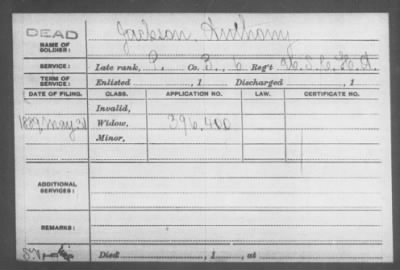 DEAD
NAME OF SOLDIER: Jackson, Anthony
SERVICE: Late rank, P, Co. B, 6 Reg't U.S.C.H.A.
TERM OF SERVICE: Enlisted , 1 Discharged , 1
DATE OF FILING. CLASS. APPLICATION NO. LAW. CERTIFICATE NO.
Invalid,
1889 May 31 Widow, 396,400
Minor,
ADDITIONAL SERVICES:
REMARKS:
Died , 1 , at